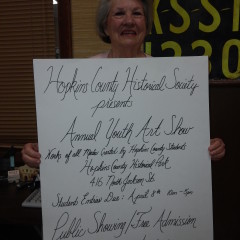 ASSI
1230
Hopkins County Historical Society
presents
Annual Youth Art Show
Works of all Media Created by Hopkins County Students
Hopkins County Historical Park
416 North Jackson St.
Students Entries Due: April 8th 10am - 5pm
Public Showing/Free Admission